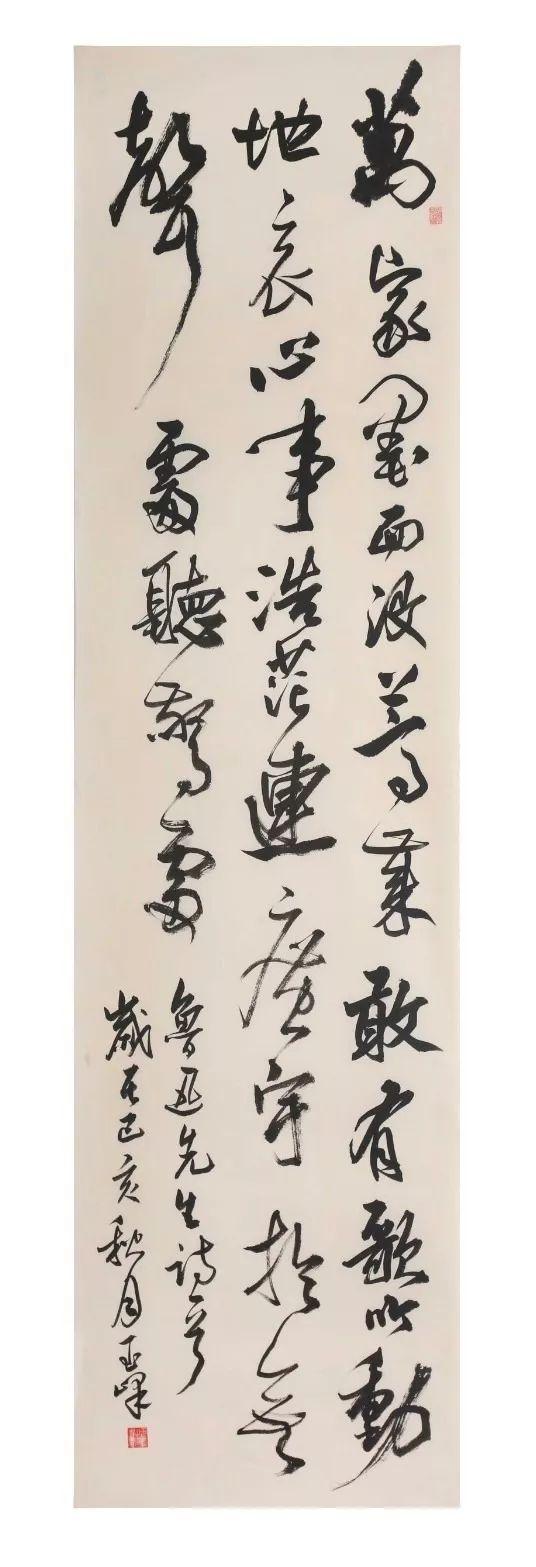 萬家墨面沒蒿萊敢有歌吟動
地哀心事浩茫連廣宇於無
聲處聽驚雷
魯迅先生詩一首
歲在己亥秋月